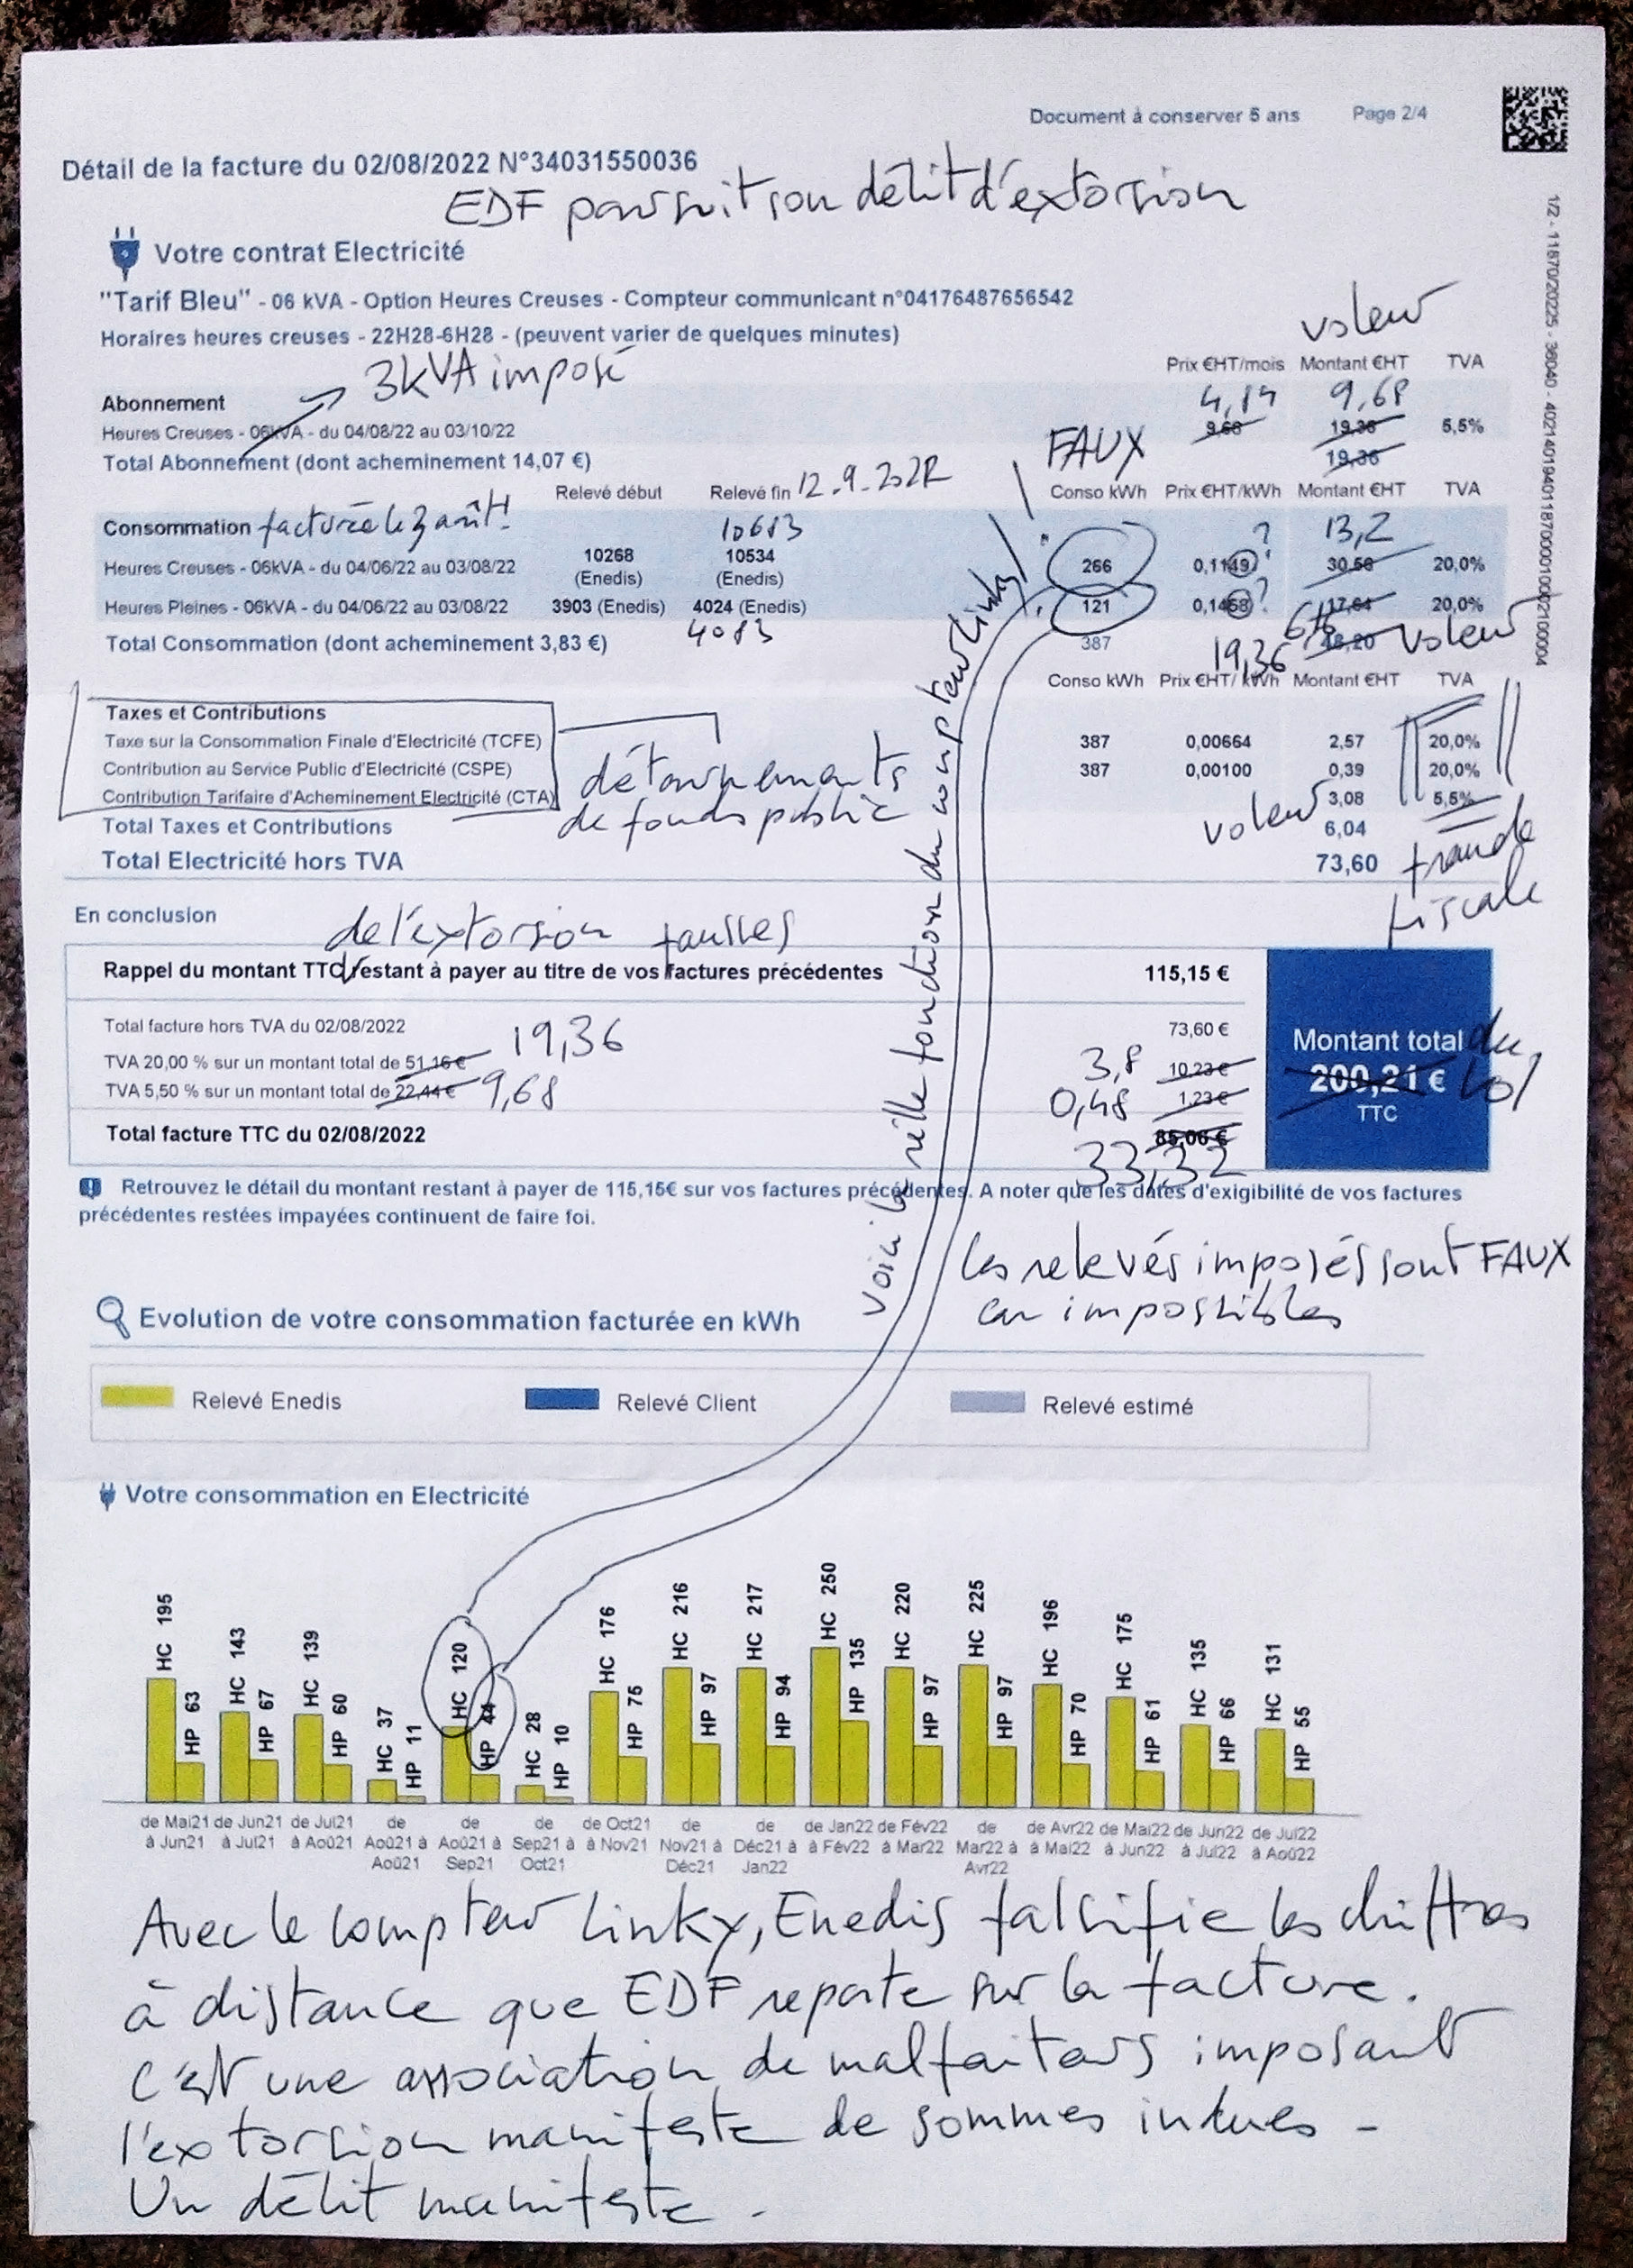 Document à conserver 5 ans Page 2/4
Détail de la facture du 02/08/2022 N°34031550036
EDF poursuit son délit d'extorsion
Votre contrat Electricité
"Tarif Bleu" - 06 kVA - Option Heures Creuses - Compteur communicant n°04176487656542
Horaires heures creuses - 22H28-6H28 - (peuvent varier de quelques minutes)
voleur
3kVA imposé
Prix €HT/mois Montant €HT TVA
Abonnement 4,84 9,68
Heures Creuses - 06kVA - du 04/08/22 au 03/10/22 9,68 19,36 5,5%
FAUX
Total Abonnement (dont acheminement 14,07 €) 19,36
Relevé début Relevé fin 12.9.2022 Conso kWh Prix €HT/kWh Montant €HT TVA
Consommation facturée le 3 août! 10613 ? 13,2
Heures Creuses - 06kVA - du 04/06/22 au 03/08/22 10268 (Enedis) 10534 (Enedis) 266 0,1149 30,56 20,0%
Heures Pleines - 06kVA - du 04/06/22 au 03/08/22 3903 (Enedis) 4024 (Enedis) 121 0,1458 ? 17,64 20,0%
4083
Total Consommation (dont acheminement 3,83 €) 387 19,36 48,20 voleur
Conso kWh Prix €HT/ kWh Montant €HT TVA
Taxes et Contributions
Taxe sur la Consommation Finale d'Electricité (TCFE) 387 0,00664 2,57 20,0%
Contribution au Service Public d'Electricité (CSPE) 387 0,00100 0,39 20,0%
Contribution Tarifaire d'Acheminement Electricité (CTA) 3,08 5,5%
détournements
de fonds public
Total Taxes et Contributions voleur 6,04
Total Electricité hors TVA 73,60
fraude
fiscale
En conclusion
de l'extorsion fausses
Rappel du montant TTC restant à payer au titre de vos factures précédentes 115,15 €
Total facture hors TVA du 02/08/2022 73,60 €
19,36
TVA 20,00 % sur un montant total de 51,16 € 3,8 10,23 €
TVA 5,50 % sur un montant total de 22,44 € 9,68 0,48 1,23 €
Total facture TTC du 02/08/2022 85,06 €
33,32
Montant total du
200,21 € vol
TTC
Retrouvez le détail du montant restant à payer de 115,15€ sur vos factures précédentes. A noter que les dates d'exigibilité de vos factures
précédentes restées impayées continuent de faire foi.
Voici la réelle fonction du compteur linky!
les relevés imposés sont FAUX
car impossibles
Evolution de votre consommation facturée en kWh
Relevé Enedis Relevé Client Relevé estimé
Votre consommation en Electricité
HC 195 HP 63 HC 143 HP 67 HC 139 HP 60 HC 37 HP 11 HC 120 HP 44 HC 28 HP 10 HC 176 HP 75 HC 216 HP 97 HC 217 HP 94 HC 250 HP 135 HC 220 HP 97 HC 225 HP 97 HC 196 HP 70 HC 175 HP 61 HC 135 HP 66 HC 131 HP 55
de Mai21 à Jun21 de Jun21 à Jul21 de Jul21 à Aoû21 de Aoû21 à Aoû21 de Aoû21 à Sep21 de Sep21 à Oct21 de Oct21 à Nov21 de Nov21 à Déc21 de Déc21 à Jan22 de Jan22 à Fév22 de Fév22 à Mar22 de Mar22 à Avr22 de Avr22 à Mai22 de Mai22 à Jun22 de Jun22 à Jul22 de Jul22 à Aoû22
Avec le compteur Linky, Enedis falsifie les chiffres
à distance que EDF reporte sur la facture.
C'est une association de malfaiteurs imposant
l'extorsion manifeste de sommes indues -
Un délit manifeste.